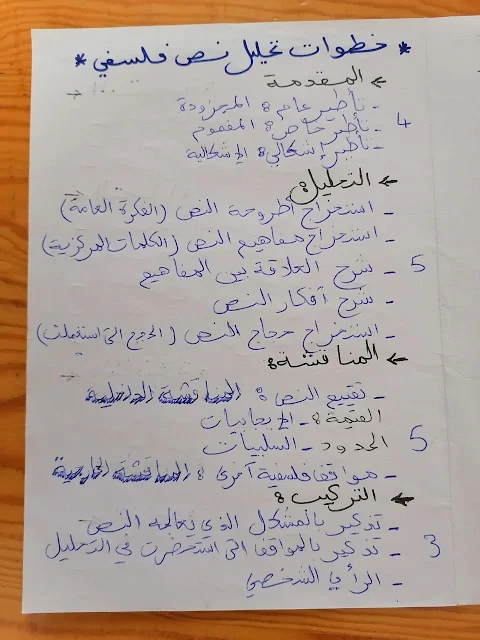 * خطوات تحليل نص فلسفي *
← المقدمة
- تأطير عام: المجزودة
- تأطير خاص: المفهوم
4
- تأطير إشكالي: الإشكالية
← التحليل:
- استخراج أطروحة النص (الفكرة العامة)
- استخراج مفاهيم النص (الكلمات المركزية)
- شرح العلاقة بين المفاهيم
5
- شرح أفكار النص
- استخراج حجاج النص (الحجج التي استعملت)
← المناقشة:
- تقييم النص: المناقشة الداخلية
القيمة: - الإيجابيات
الحدود - السلبيات
5
- مواقف فلسفية أخرى: المناقشة الخارجية
← التركيب:
- تذكير بالمشكل الذي يعالجه النص
- تذكير بالمواقف التي استحضرت في التحليل
3
- الرأي الشخصي